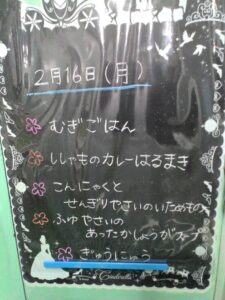 2月16日(月)
むぎごはん
ししゃものカレーはるまき
こんにゃくと
せんぎりやさいのいためもの
ふゆやさいの
あったかしょうがスープ
ぎゅうにゅう
Cinderella